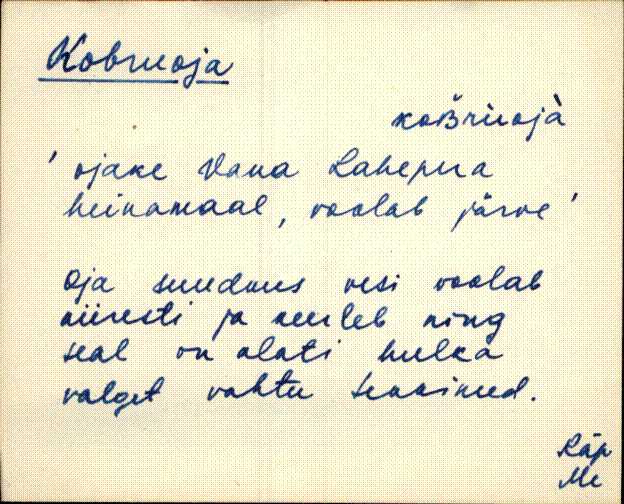 Kobruoja
koʙ̆rùojà
'ojake Vana Lahepera
heinamaal, voolab järve'
Oja suudmes vesi voolab
kiiresti ja keerleb ning
seal on alati hulka
valget vahtu tekkinud.
Räp
Me